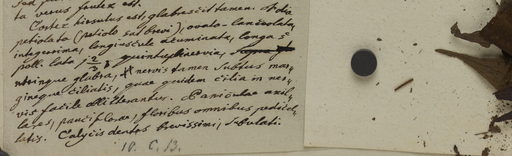 ta venus fautex est.
Cortex hirsutus est, glabrescit tamen. Folia
petiolata (petiolo sat brevi), ovato-lanceolata,
integerrima, longiuscule acuminata, longa 5
poll. lata 1 2/3, quintuplinervia,
utrinque glabra, nervis tamen subtus mar-
gineque ciliatis, quae quidem cilia in ner-
vis facile obliterantur. Paniculae axil-
lares, pauciflorae, floribus omnibus pedicel-
latis. Calycis dentes brevissimi, subulati.
10. C. 13.